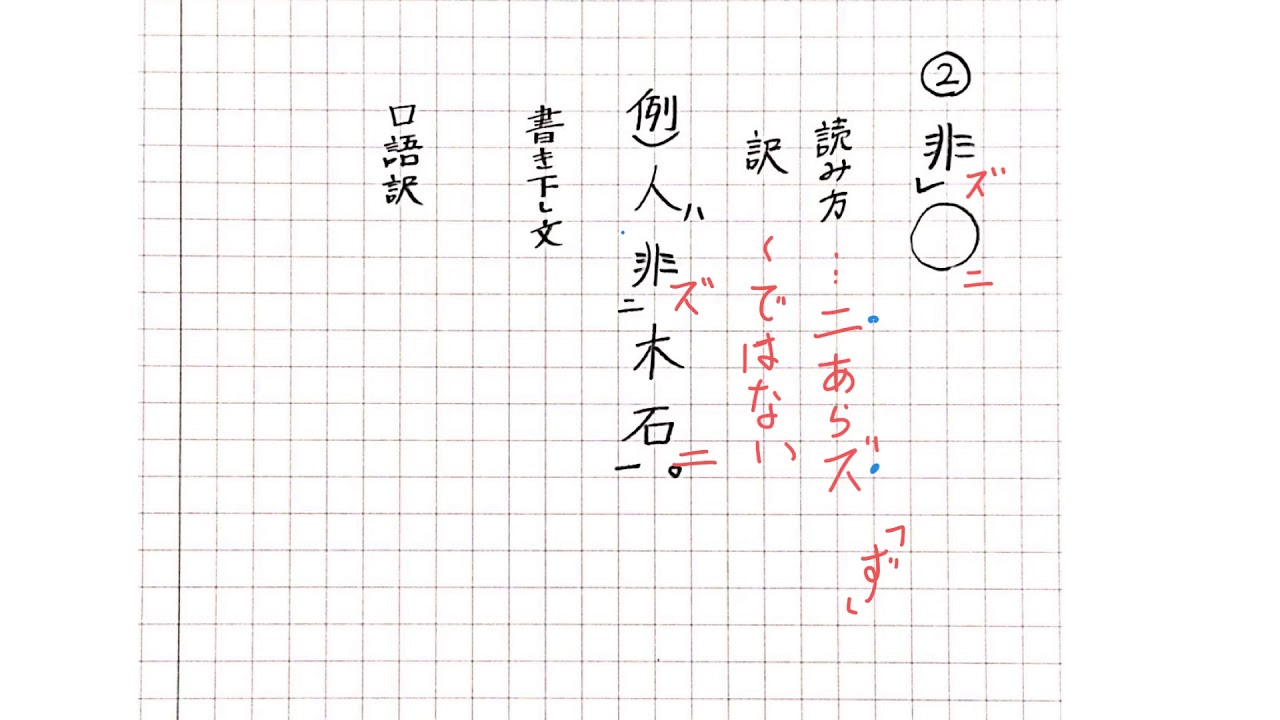 ②
非レ◯ズニ
読み方 …ニあらズ
「ず」
訳 〜ではない
例)人ハ非ズ二木石ニ一。
書き下し文
口語訳